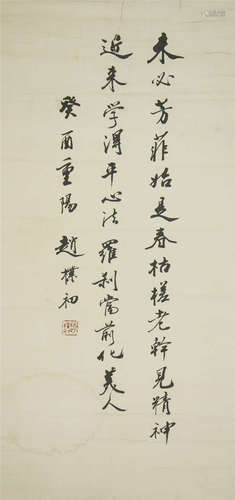 未必芳菲始是春枯槎老幹見精神
近来学得平心法羅刹當前化美人
癸酉重陽 趙樸初